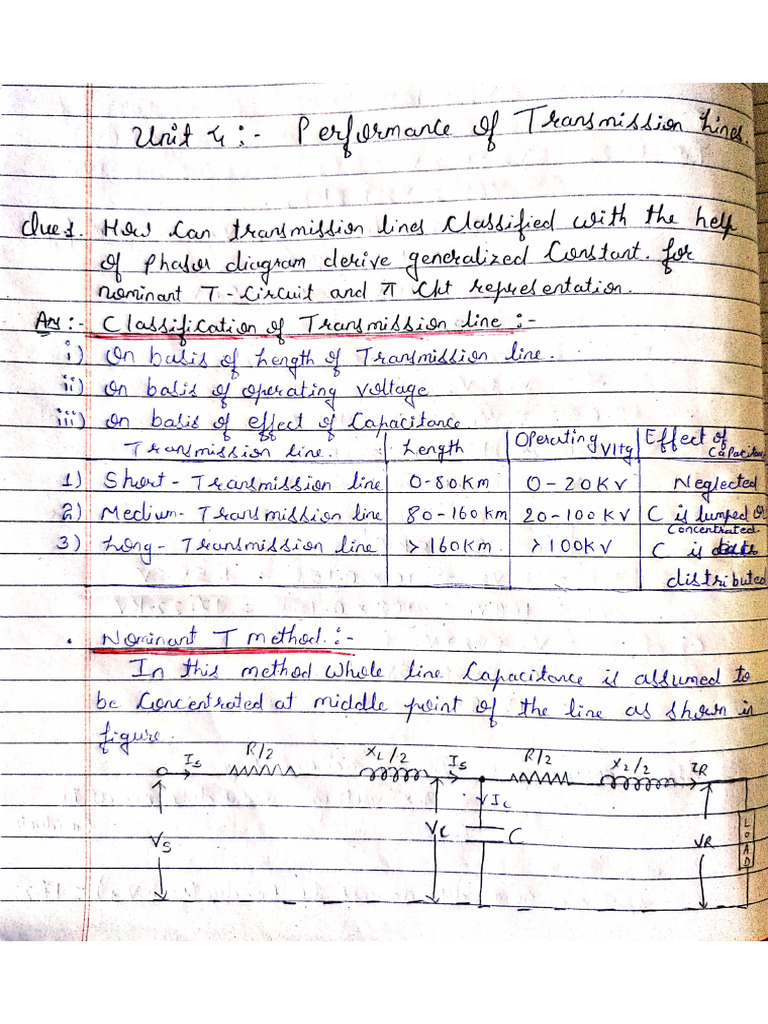 Unit 4 :- Performance of Transmission Lines.
Que 1. How Can transmission lines Classified with the help
of phasor diagram derive generalized Constant. for
nominant T - Circuit and π Ckt representation.
Ans :- Classification of Transmission line :-
i) On basis of Length of Transmission line.
ii) On basis of operating voltage
iii) On basis of effect of Capacitance.
Transmission line. Length Operating Vltg Effect of Capacitan
1) Short - Transmission line 0-80Km 0-20KV Neglected
2) Medium - Transmission line 80-160Km 20-100KV C is lumped or
Concentrated.
3) Long - Transmission line >160Km >100KV C is
distributed
• Nominant T method :-
In this method Whole line Capacitance is assumed to
be Concentrated at middle point of the line as shown in
figure.
Is R/2 XL/2 Is R/2 XL/2 IR
Ic
Vs Vc C VR LOAD